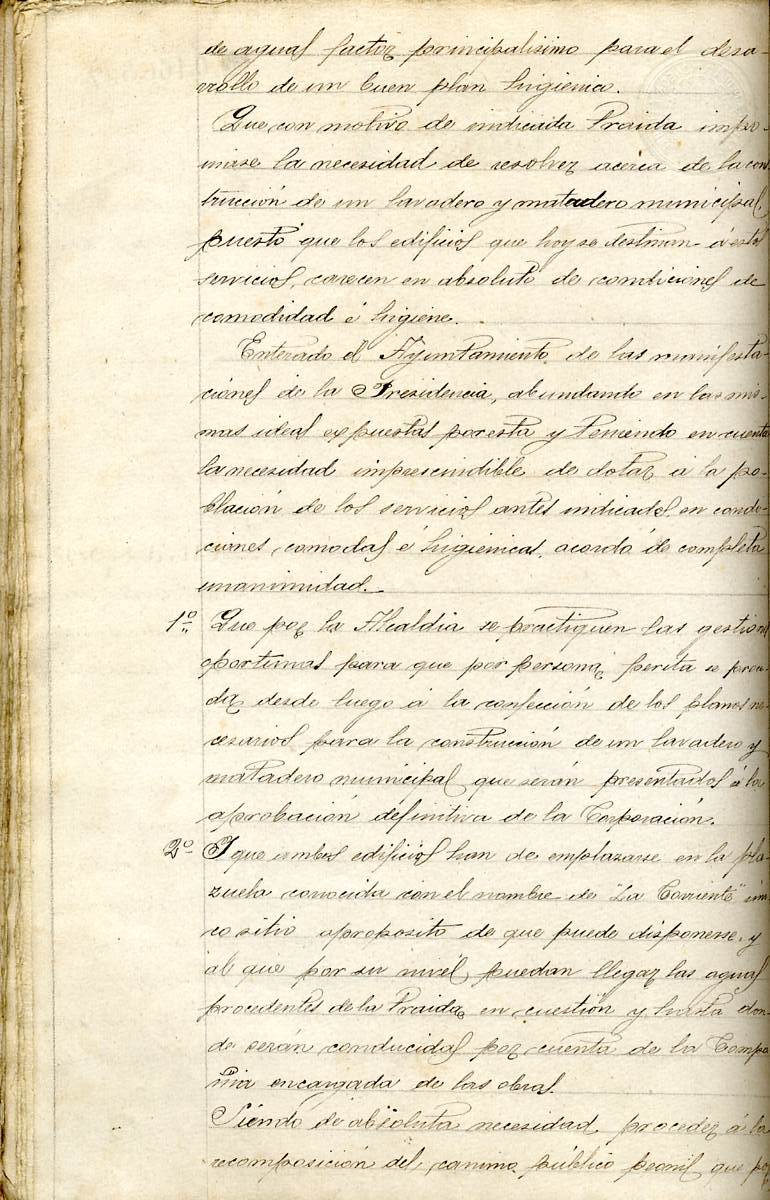 de aguas factor principalisimo para el desa-
rrollo de un buen plan higienico.
Que con motivo de indicada Traida impo-
nirse la necesidad de resolver acerca de la cons
trucción de un lavadero y matadero municipal,
puesto que los edificios que hoy se destinan á estos
servicios, carecen en absoluto de condiciones de
comodidad é higiene.
Enterado el Ayuntamiento de las manifesta-
ciones de la Presidencia, abundando en las mis-
mas ideas expuestas por esta y teniendo en cuenta
la necesidad imprescindible de dotar á la po-
blación de los servicios antes indicados en condi-
ciones comodas é higienicas, acordó de completa
unanimidad.
1º Que por la Alcaldia se practiquen las gestiones
oportunas para que por persona perita se proce-
da desde luego á la confección de los planos ne-
cesarios para la construcción de un lavadero y
matadero municipal que serán presentados á la
aprobación definitiva de la Corporación.
2º Y que ambos edificios han de emplazarse en la pla-
zuela conocida con el nombre de "La Corriente" uni
co sitio aproposito de que puede disponerse, y
al que por su nivel puedan llegar las aguas
procedentes de la Traida en cuestión y hasta don-
de serán conducidas por cuenta de la Compa
ñia encargada de las obras.
Siendo de absoluta necesidad proceder á la
recomposición del camino público peonil que por